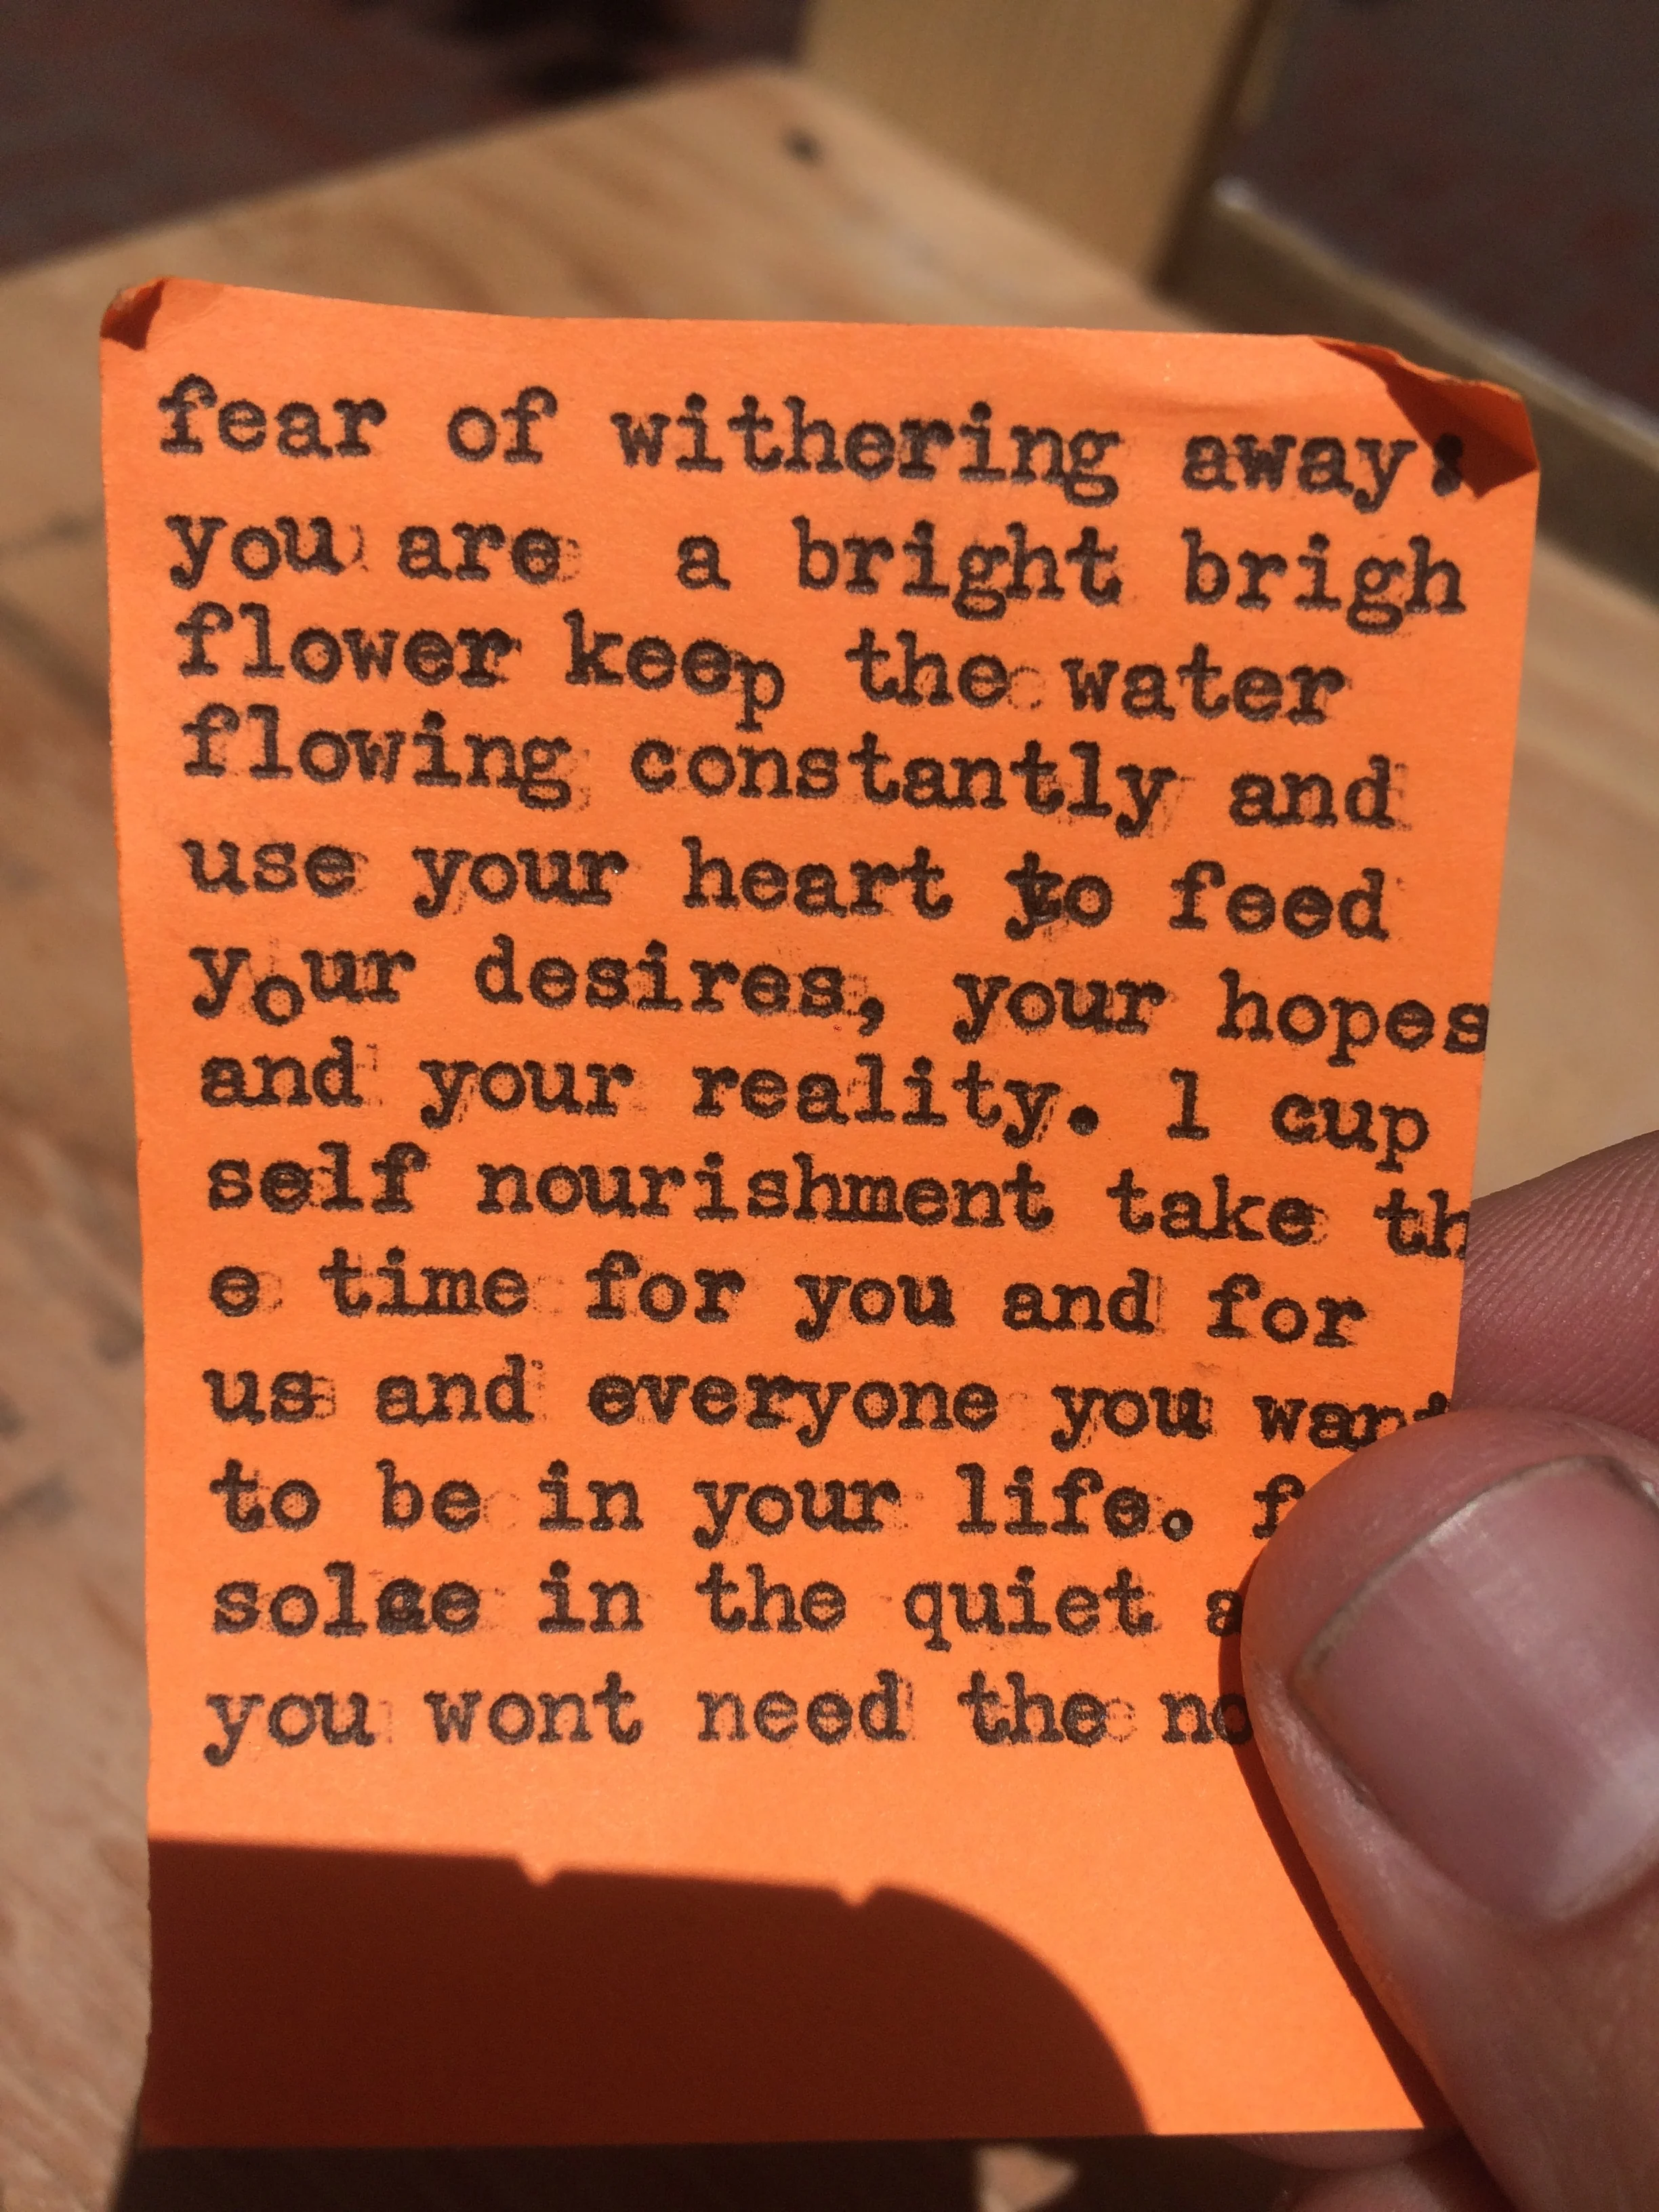 fear of withering away:
you are  a bright brigh
flower keep the water
flowing constantly and
use your heart to feed
your desires, your hopes
and your reality. 1 cup
self nourishment take th
e time for you and for
us and everyone you want
to be in your life.
in the quiet
you wont need the